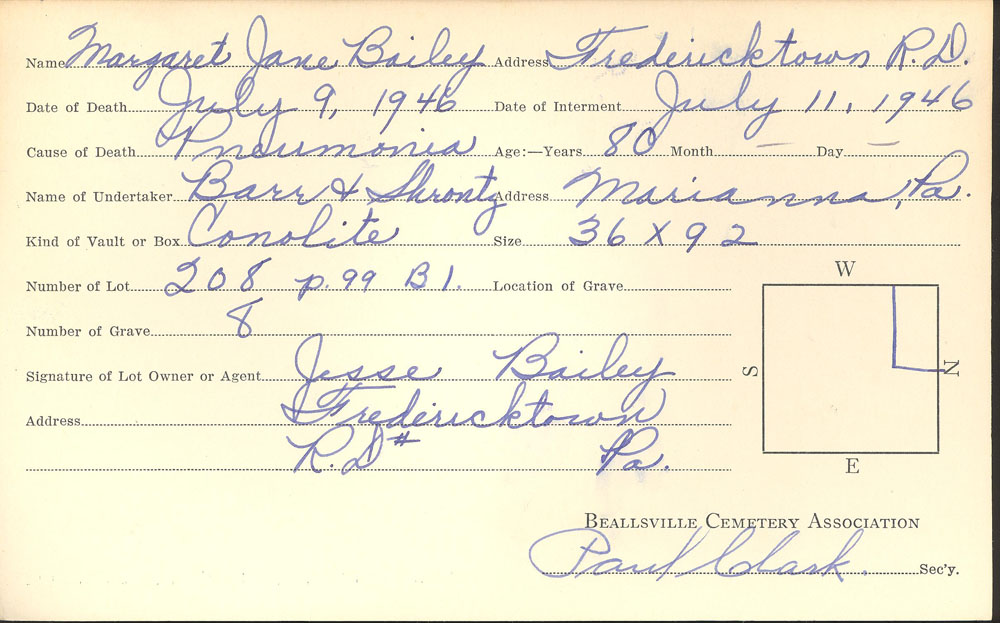 Name Margaret Jane Bailey Address Fredericktown R.D.
Date of Death July 9, 1946 Date of Interment July 11, 1946
Cause of Death Pneumonia Age:—Years 80 Month — Day —
Name of Undertaker Barr & Shrontz Address Marianna, Pa.
Kind of Vault or Box Conolite Size 36 X 92
Number of Lot 208 p. 99 B 1. Location of Grave
W
Number of Grave 8
S N
Signature of Lot Owner or Agent Jesse Bailey
Address Fredericktown
R.D# Pa.
E
BEALLSVILLE CEMETERY ASSOCIATION
Paul Clark. Sec'y.